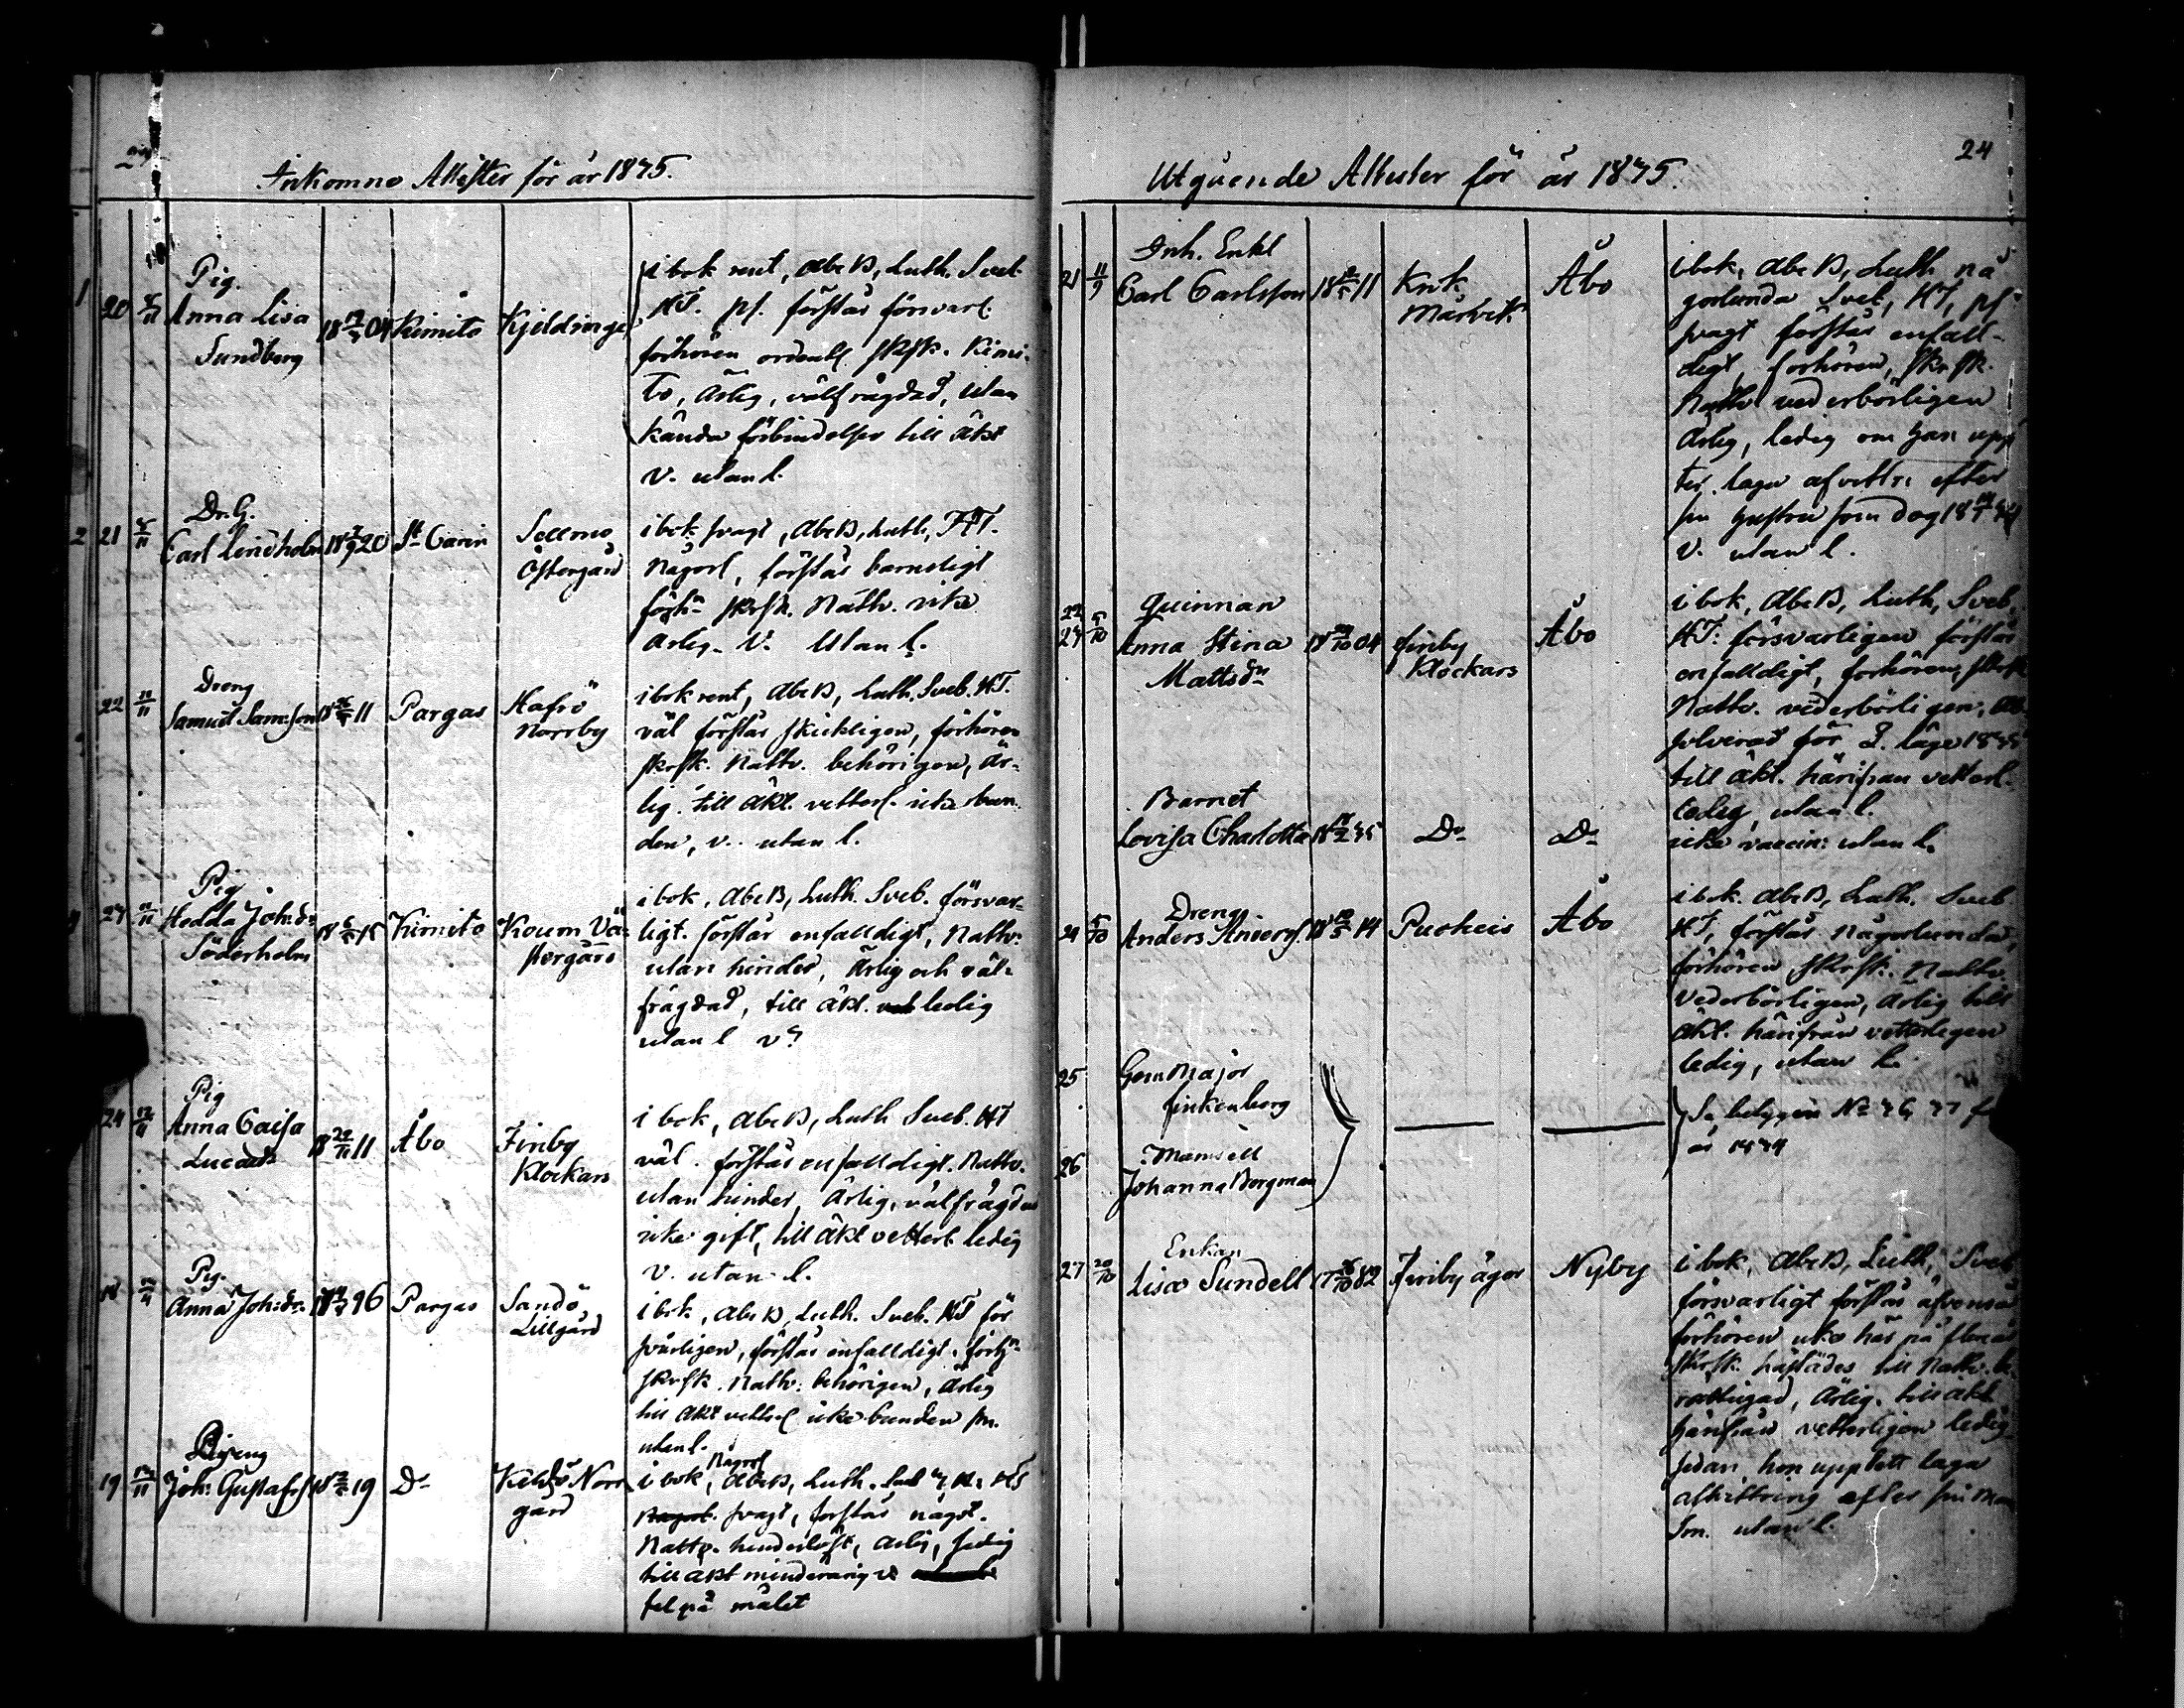 24
Inkomne Attester för år 1835.
Pig.
20 Anna Lisa 18 04 Kimito Kjeldinge
Sundberg
i bok rent, Abc B, Luth. Sveb.
HT. ps. förstår försvarl.
förhören ordentl. skrsk. Kimi-
to, Ärlig, välfrägdad, utan
kända förbindelser till äkt
v. utan l.
Dr. G.
21 Carl Lindholm 18 20 St Carin Sellmo
Östergård
i bok svagt, Abc B, Luth, HT.
Någorl, förstår barnsligt
förhn skrsk. Nattv. icke
Ärlig. V. Utan l.
Dreng
22 Samuel Sams:son 18 11 Pargas Hafrö
Norrby
i bok rent, Abc B, Luth. Sveb. HT.
väl förstår skickligen, förhören
skrsk. Nattv. behörigen, är-
lig. till äkt vetterl. icke bun-
den, v. utan l.
Pig
23 Hedda Joh:dr 18 15 Kimito Koum Vä-
Söderholm stergård
i bok, Abc B, Luth. Sveb. försvar-
ligt. förstår enfalldigt, Nattv.
utan hinder, Ärlig och väl-
frägdad, till äkt. ledig
utan l v.
Pig
24 Anna Caisa 18 11 Åbo Finby
Lucasdr Klockars
i bok, Abc B, Luth Sveb. HT
väl. förstår enfalldigt. Nattv.
utan hinder, Ärlig, välfrägdad
icke gift, till äkt vetterl. ledig
v. utan l.
Pig.
18 Anna Joh:dr. 17 96 Pargas Sandö
Lillgård
i bok, Abc B, Luth. Sveb. HT för
svarligen, förstår enfalldigt. förhn
skrsk. Nattv. behörigen, Ärlig
till äkt vetterl icke bunden
utan l.
Dreng
19 Joh: Gustafss 18 19 Do Norr
gård
Någorl
i bok, Abc B, Luth. HT
Någorl. svagt, förstår någorl.
Nattv. hinderlöst, Ärlig, ledig
till äkt minderårig
fel på målet
24
Utgående Attester för år 1835.
Inh. Enkl
21 11/9 Carl Carlsson 18 11 Knk Åbo
Märvik
i bok, Abc B, Luth nå
gorlunda Sveb, HT, ps
svagt förstår enfall-
digt, förhören, skrsk.
Nattv vederbörligen
Ärlig, ledig om han upp
ter laga afvittr: efter
sin hustru som dog 18
v. utan l.
22 Quinnan
23 5/10 Anna Stina 18 04 Finby Åbo
Mattsdr Klockars
i bok, Abc B, Luth, Sveb,
HT: försvarligen förstår
enfalldigt, förhören, skrsk
Nattv. vederbörligen, Ab-
solverad för L. läge 1835
till äkt. härifrån vetterl.
ledig, utan l.
Barnet
Lovisa Charlotta 18 35 Do Do
icke vaccin: utan l.
Dreng
24 5/10 Anders Anders 18 14 Puokeis Åbo
i bok. Abc B, Luth. Sveb
HT, förstår Någorlunda,
förhören skrsk. Nattv.
vederbörligen, Ärlig till
äkt. härifrån vetterligen
ledig, utan l.
25 Gen Major
Finkenberg
26 Mamsell
Johanna Borgman
Se, bilagan No 36, 37
år 1834
Enkan
27 20/10 Lisa Sundell 17 82 Finby ägor Nyby
i bok, Abc B, Luth, Sveb
försvarligt förstår äfvenså
förhören icke här på flera år
skrsk. härstädes till Nattv. be
rättigad, Ärlig. till äkt
härifrån vetterligen ledig
sedan hon upptett laga
afvittring efter sin man
utan l.